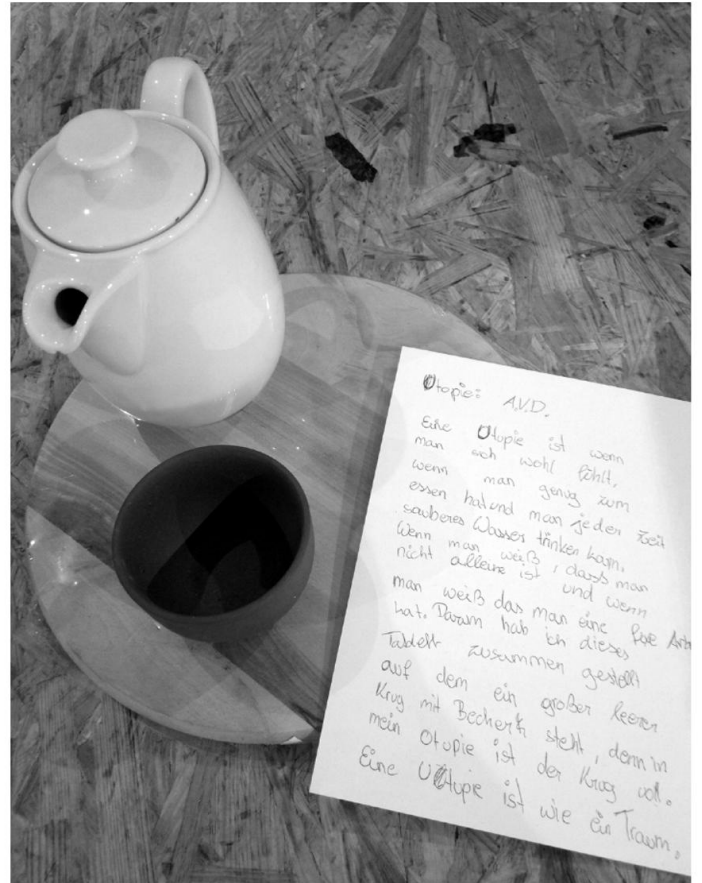 Utopie: A.V.D.
Eine Utopie ist wenn
man sich wohl fühlt,
wenn man genug zum
essen hat und man jeder Zeit
sauberes Wasser trinken kann.
Wenn man weiß, dass man
nicht alleine ist und wenn
man weiß das man eine
hat. Darum hab ich dieses
Tablett zusammen gestellt
auf dem ein großer leerer
Krug mit Bechern steht, denn in
mein Otupie ist der Krug voll.
Eine Utupie ist wie ein Traum.